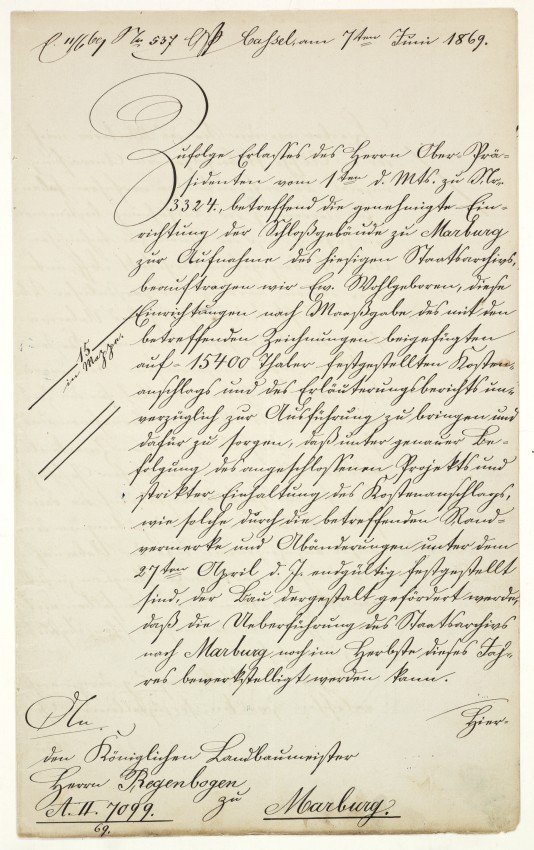 E. 11/6 69 No. 537 Cassel, am 7ten Juni 1869.
Zufolge Erlasses des Herrn Ober-Prä-
sidenten vom 1ten d. Mts. zu Nr.
3324, betreffend die genehmigte Ein-
richtung der Schloßgebäude zu Marburg
zur Aufnahme des hiesigen Staatsarchivs,
beauftragen wir Ew. Wohlgeboren, diese
Einrichtungen nach Maaßgabe des mit den
betreffenden Zeichnungen beigefügten
auf - 15400 Thaler festgestellten Kosten-
anschlags und des Erläuterungsberichts un-
verzüglich zur Ausführung zu bringen und
dafür zu sorgen, daß unter genauer Be-
folgung des angeschlossenen Projekts und
strikter Einhaltung des Kostenanschlags,
wie solche durch die betreffenden Rand-
vermerke und Abänderungen unter dem
27ten April d. J. endgültig festgestellt
sind, der Bau dergestalt gefördert werde,
daß die Ueberführung des Staatsarchivs
nach Marburg noch im Herbste dieses Jah-
res bewerkstelligt werden kann.
15
in Mappe
Hier-
An
den Königlichen Landbaumeister
Herrn Regenbogen
zu Marburg.
A. II. 7099.
69.